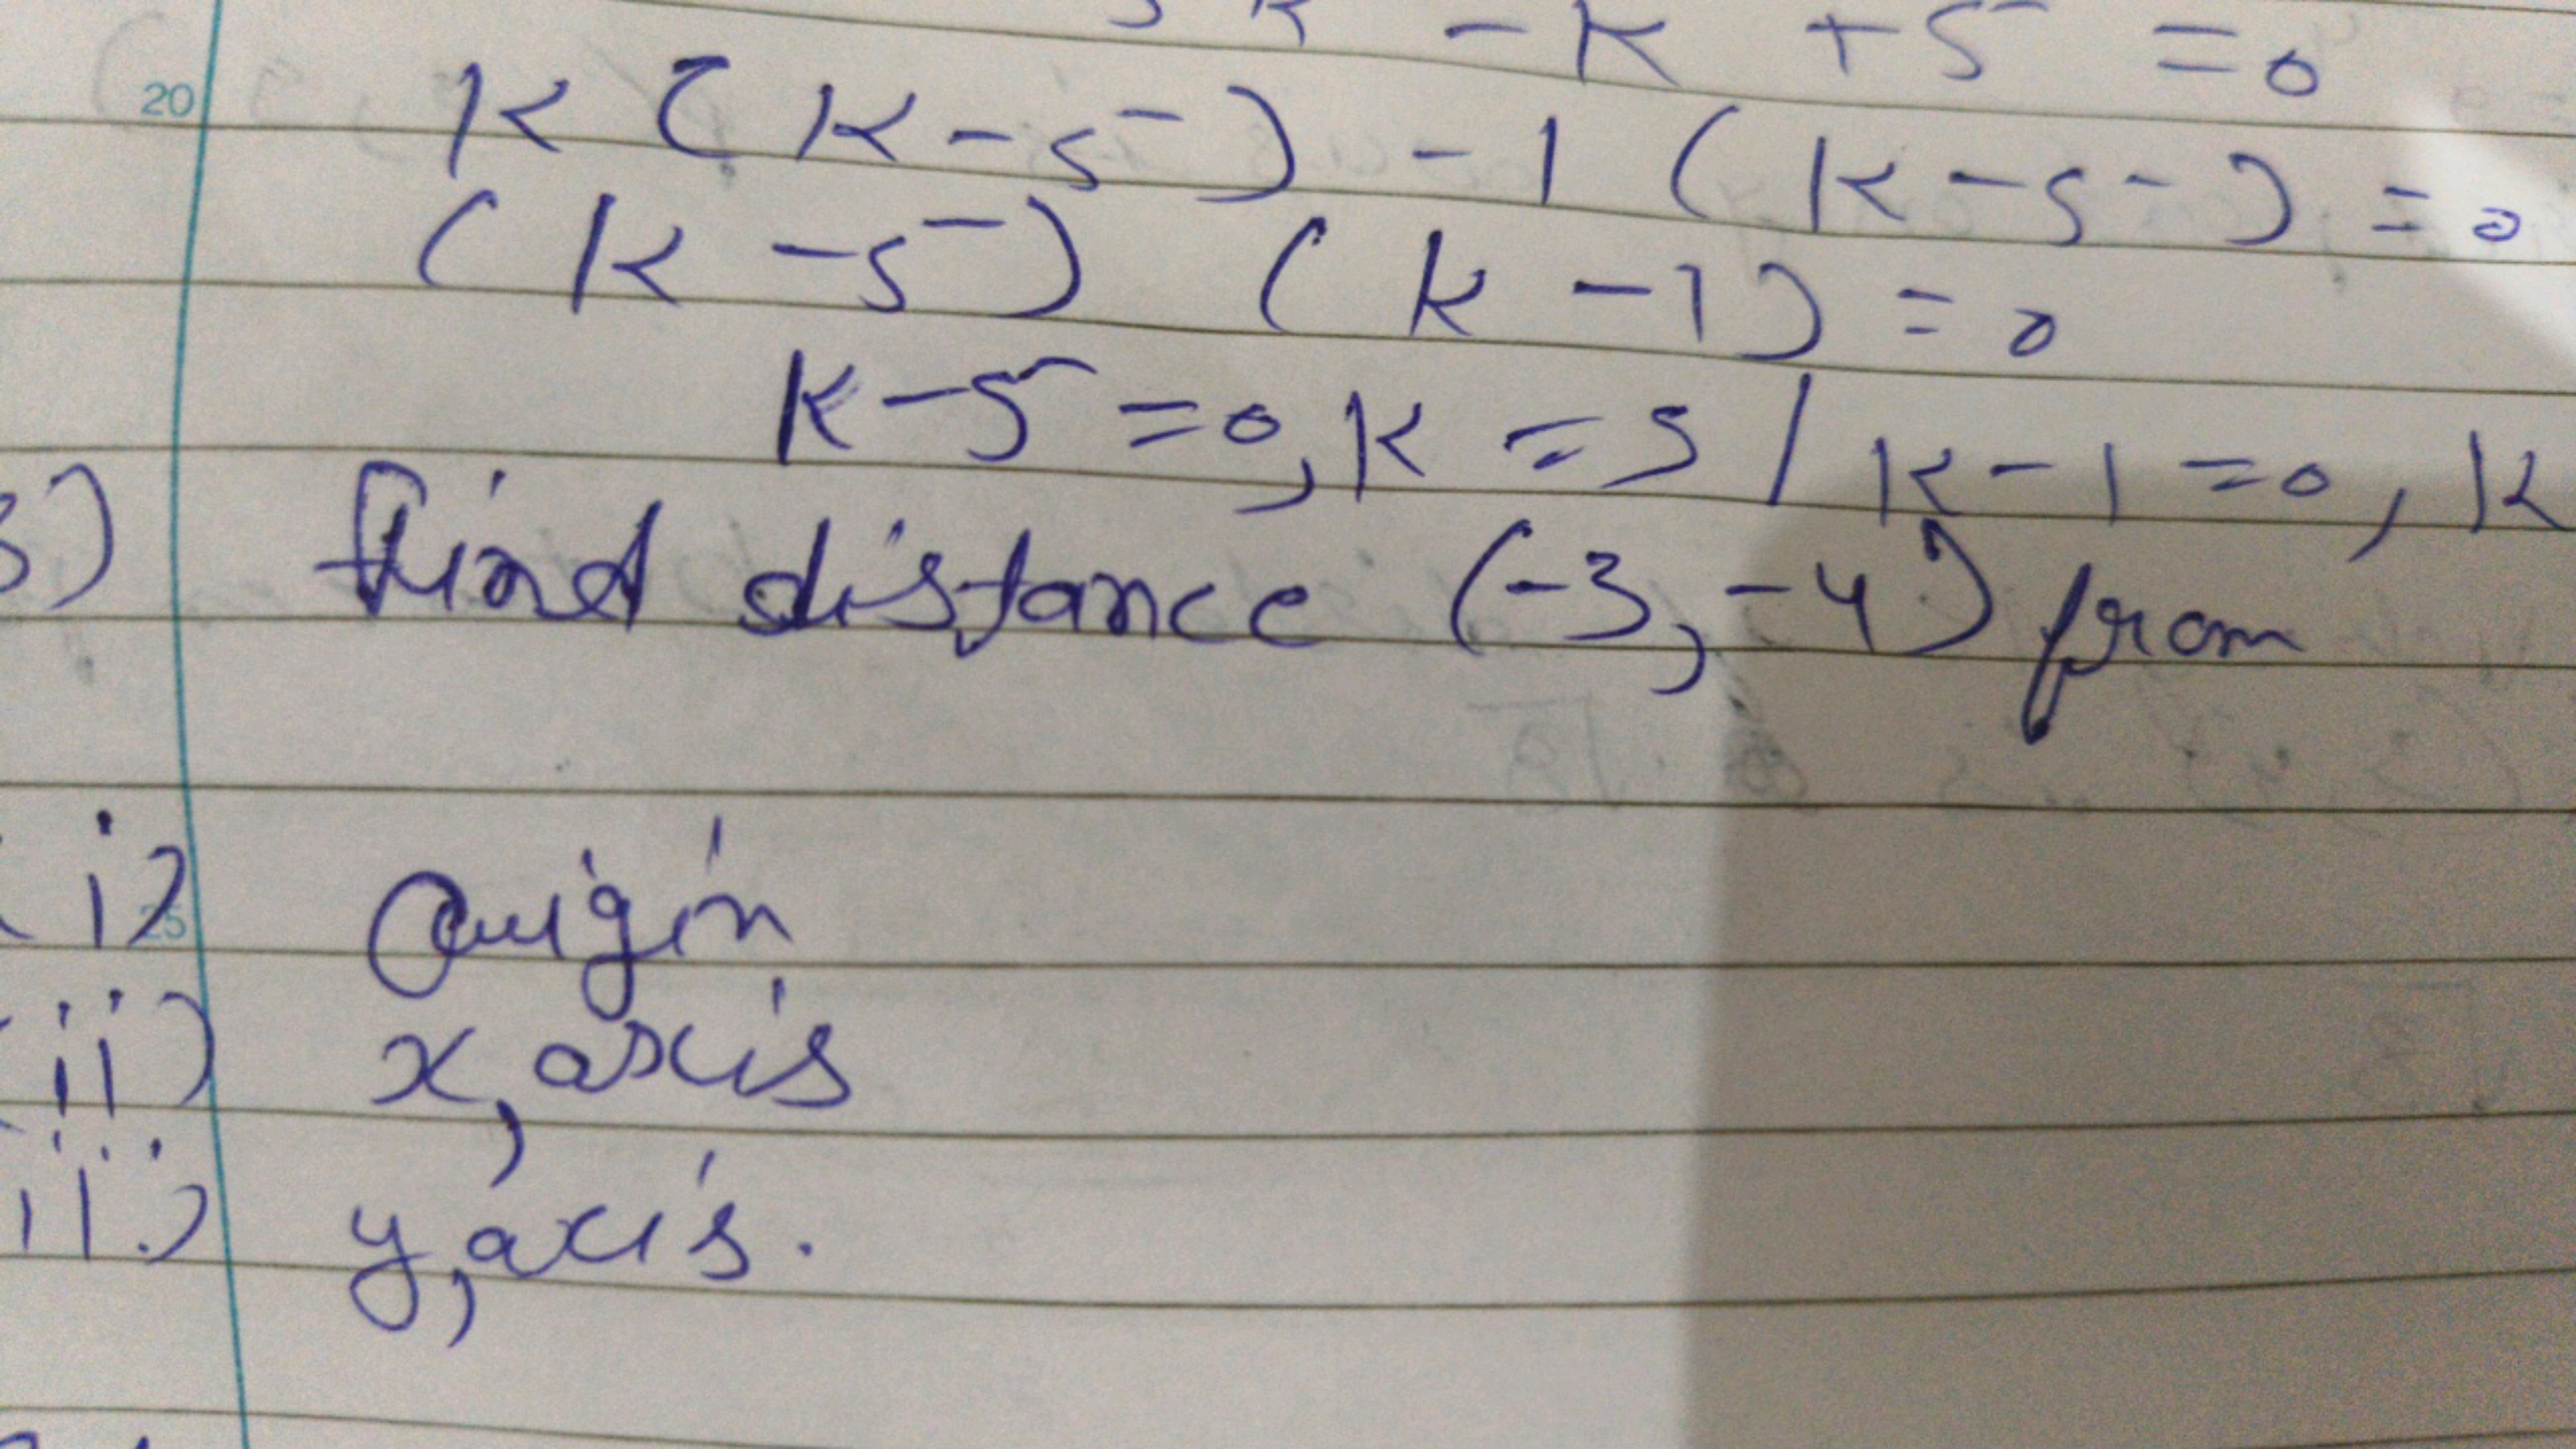 5k - k + 5 = 0
20
k (k - 5) - 1 (k - 5) = 0
(k - 5) (k - 1) = 0
k - 5 = 0, k = 5 / k - 1 = 0, k
3) find distance (-3, -4) from
i) origin
25
ii) x, axis
iii) y, axis.